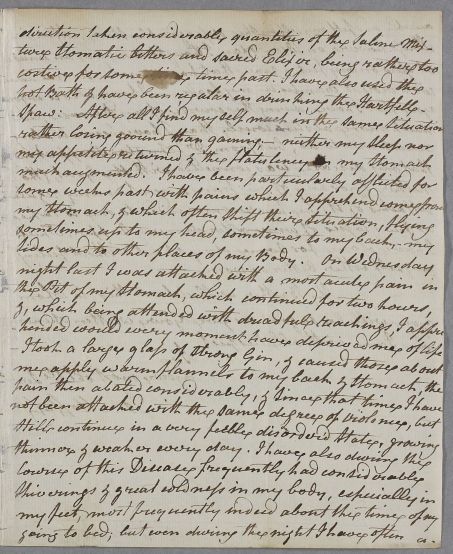 direction taken considerable quantities of the Saline Mix-
ture Stomatic bitters and sacred Elixir, being rather too
costive for some time past. I have also used the
foot Bath & have been regular in drinking the Hartfell
Spaw. After all I find myself much in the same situation
rather losing ground than gaining – neither my sleep nor
my appetite returned & the flatulency my Stomach
much augmented. I have been particularly afflicted for
some weeks past with pains which I apprehend come from
my Stomach, & which often shift their situation, flying
sometimes up to my head, sometimes to my back, my
sides and to other places of my Body. On Wednesday
night last I was attacked with a most acute pain in
the Pit of my Stomach, which continued for two hours,
&, which being attended with dreadful reachings, I appre-
hended would every moment have deprived me of life
I took a large glass of Strong Gin, & caused those about
me apply warm flannels to my back & Stomach, the
pain then abated considerably, & since that time I have
not been attacked with the same degree of violence, but
still continue in a very feeble disordered state, growing
thinner & weaker every day. I have also during the
Course of this Disease frequently had considerable
Shiverings & great coldness in my body, especially in
my feet, most frequently indeed about the time of my
going to bed, but even during the night I have often
a-